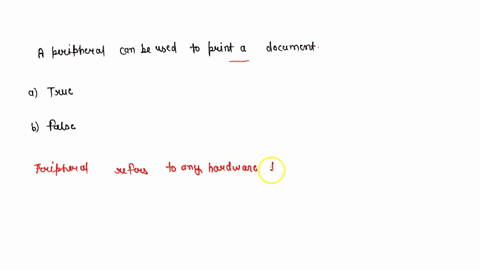 A peripheral can be used to print a document.
a) True
b) false
Peripheral refers to any hardware